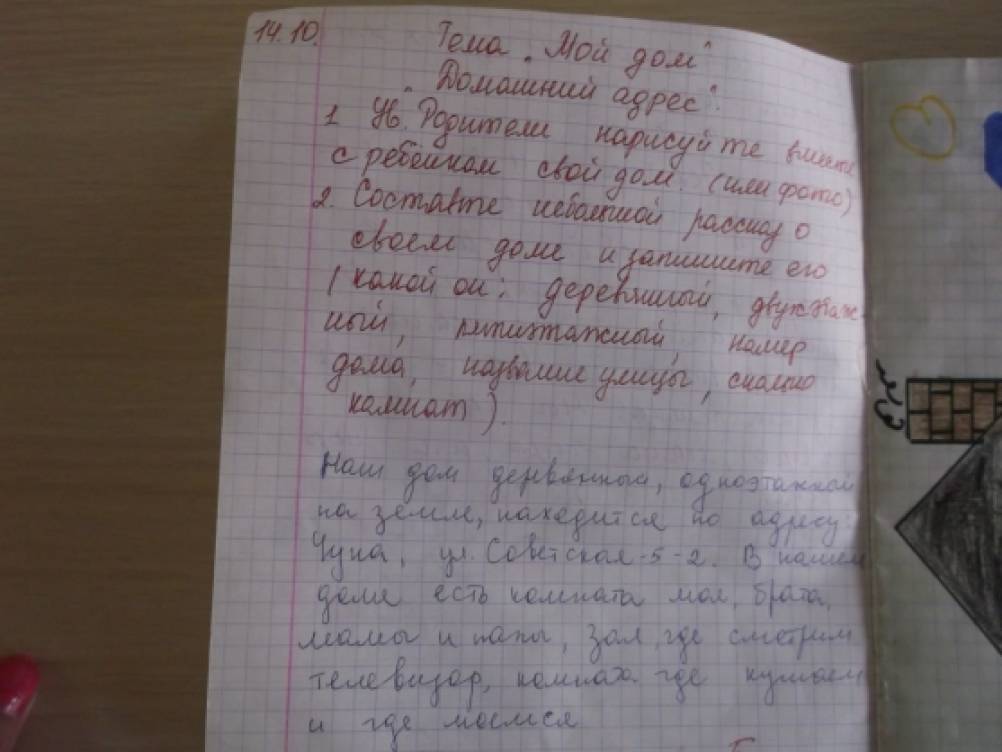 14.10.
Тема „Мой дом"
„Домашний адрес".
1. Ув. Родители нарисуйте вместе
с ребенком свой дом. (или фото)
2. Составте небольшой рассказ о
своем доме и запишите его
(какой он: деревянный, двухэтаж
ный, пятиэтажный, номер
дома, название улицы, сколько
комнат).
Наш дом деревянный, одноэтажной
на земле, находится по адресу:
Чупа, ул. Советская-5-2. В нашем
доме есть комната моя, брата,
мамы и папы, зал, где смотрим
телевизор, где кушаем
и где моемся